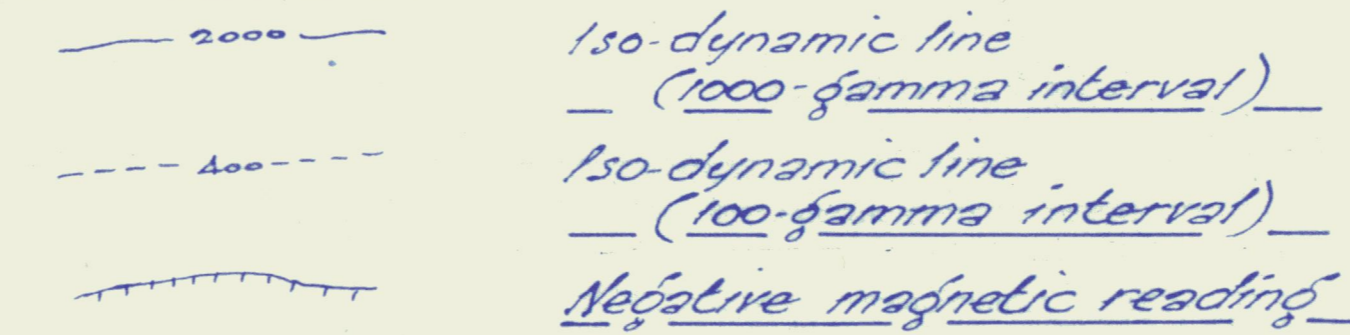 2000 Iso-dynamic line
(1000-gamma interval)
400 Iso-dynamic line
(100-gamma interval)
Negative magnetic reading